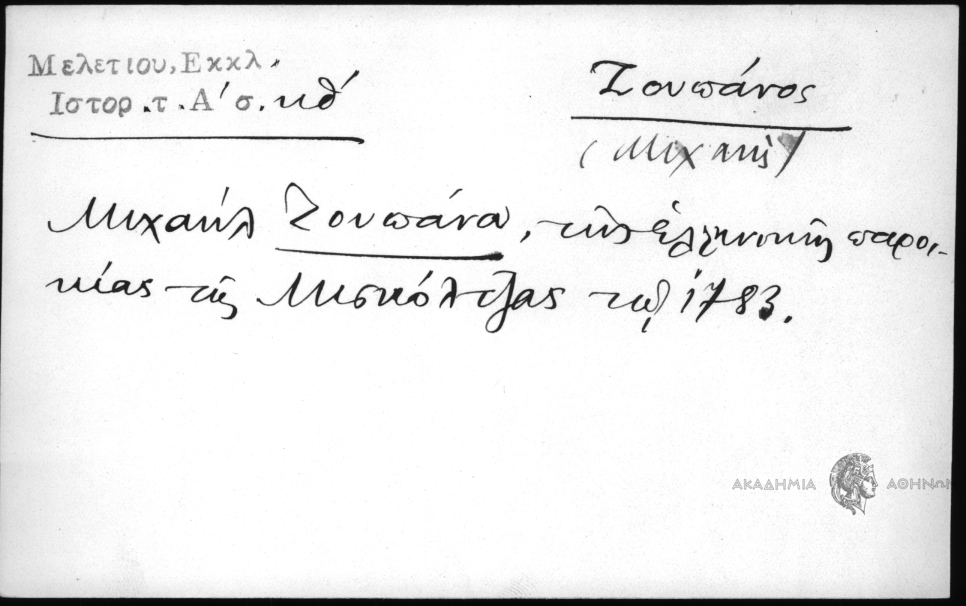 Μελετιου, Εκκλ.
Ιστορ. τ. Α' σ. κθ'
Ζουπάνος
(Μιχαήλ)
Μιχαήλ Ζουπάνα, τῆς ἑλληνικῆς παροι-
κίας τῆς Μισκόλτζας τῷ 1783.
ΑΚΑΔΗΜΙΑ ΑΘΗΝΩΝ